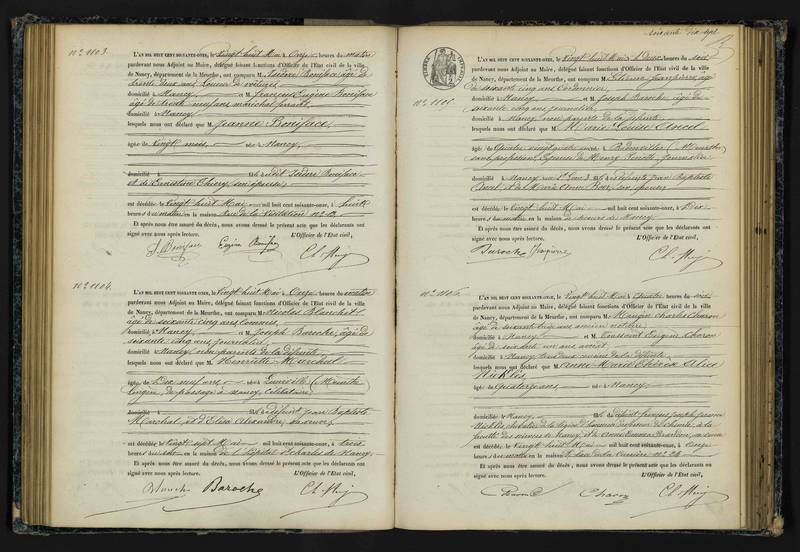 nº 1103.
L'AN MIL HUIT CENT SOIXANTE-ONZE, le vingt huit Mai à Onze heures du matin
pardevant nous Adjoint au Maire, délégué faisant fonctions d'Officier de l'État civil de la ville
de Nancy, département de la Meurthe, ont comparu M. Isidore Boniface âgé de
trente deux ans, Loueur de voitures
domicilié à Nancy et M. François Eugène Boniface
âgé de trente neuf ans maréchal ferrant
domicilié à Nancy
lesquels nous ont déclaré que M. Jeanne Boniface,
âgée de Vingt mois, née à Nancy,
domicilié à fille de dit Isidore Boniface
et de Ernestine Thiery son épouse,
est décédée le Vingt huit Mai mil huit cent soixante-onze, à huit
heures du matin en la maison Rue de la Visitation nº 12
Et après nous être assuré du décès, nous avons dressé le présent acte que les déclarants ont
signé avec nous après lecture. L'Officier de l'État civil,
I. Boniface Eugène Boniface
nº 1104.
L'AN MIL HUIT CENT SOIXANTE-ONZE, le Vingt huit Mai à Onze heures du matin
pardevant nous Adjoint au Maire, délégué faisant fonctions d'Officier de l'État civil de la ville
de Nancy, département de la Meurthe, ont comparu M. Nicolas Blanchot
âgé de soixante cinq ans Commis,
domicilié à Nancy et M. Joseph Baroche, âgé de
soixante cinq ans journalier
domicilié à Nancy non parents de la défunte
lesquels nous ont déclaré que M. Henriette Marchal
âgée de Dix neuf ans née à Lunéville (Meurthe)
Lingère, de passage à Nancy, Célibataire,
domicilié à fille de défunt Jean Baptiste
Marchal, et d'Elisa Alexandre, sa veuve,
est décédée le Vingt sept Mai mil huit cent soixante-onze, à trois
heures du soir en la maison de l'hôpital St Charles de Nancy
Et après nous être assuré du décès, nous avons dressé le présent acte que les déclarants ont
signé avec nous après lecture. L'Officier de l'État civil,
Baroche
soixante dix sept
nº 1105.
L'AN MIL HUIT CENT SOIXANTE-ONZE, le Vingt huit Mai à Onze heures du
pardevant nous Adjoint au Maire, délégué faisant fonctions d'Officier de l'État civil de la ville
de Nancy, département de la Meurthe, ont comparu M. Etienne âgé
de soixante cinq ans Cordonnier,
domicilié à Nancy et M. Joseph Baroche âgé de
soixante cinq ans journalier
domicilié à Nancy non parents de la défunte
lesquels nous ont déclaré que M. Marie Louise
âgée de Quatre vingt née à (Meurthe)
sans profession, Epouse de Henry journalier
domiciliée à Nancy fille de défunts Jean Baptiste
et de Marie Anne son épouse
est décédée le Vingt huit Mai mil huit cent soixante-onze, à Dix
heures du matin en la maison de secours de Nancy
Et après nous être assuré du décès, nous avons dressé le présent acte que les déclarants ont
signé avec nous après lecture. L'Officier de l'État civil,
Baroche
nº 1106.
L'AN MIL HUIT CENT SOIXANTE-ONZE, le Vingt huit Mai à Quatre heures du soir
pardevant nous Adjoint au Maire, délégué faisant fonctions d'Officier de l'État civil de la ville
de Nancy, département de la Meurthe, ont comparu M. Mangin Charles Charon
âgé de soixante ans ancien notaire
domicilié à Nancy et M. Toussaint Eugène Charon
âgé de soixante un ans avocat
domicilié à Nancy tous deux de la défunte
lesquels nous ont déclaré que M. Anne Marie Thérèse Alice
Nicklès
âgée de Quatorze ans née à Nancy,
domiciliée à Nancy fille de défunt François Joseph Jérôme
Nicklès chevalier de la légion d'honneur professeur de chimie, à la
faculté des sciences de Nancy, et de sa veuve
est décédée le Vingt huit Mai mil huit cent soixante-onze, à Cinq
heures du matin en la maison Rue de la nº 24
Et après nous être assuré du décès, nous avons dressé le présent acte que les déclarants ont
signé avec nous après lecture. L'Officier de l'État civil,
Charon